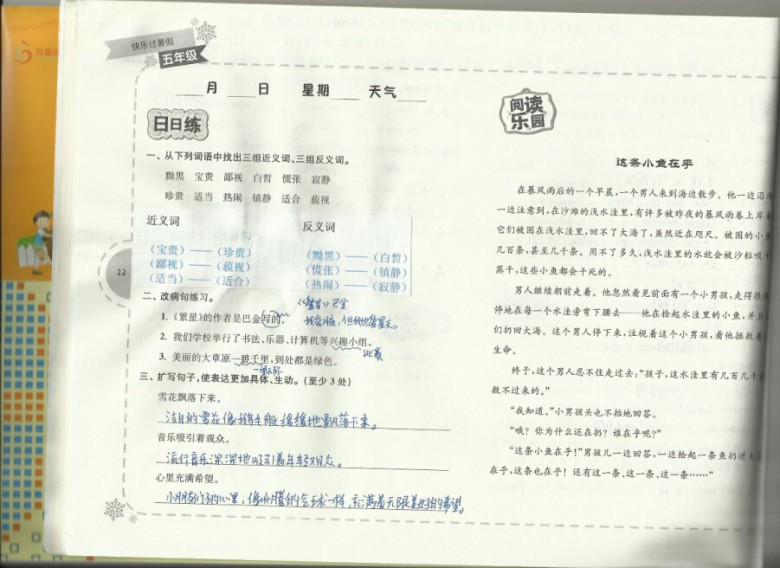 快乐过暑假
五年级
月 日 星期 天气
日日练
一、从下列词语中找出三组近义词、三组反义词。
黝黑 宝贵 鄙视 白皙 慌张 寂静
珍贵 适当 热闹 镇静 适合 藐视
近义词 反义词
（宝贵）——（珍贵） （黝黑）——（白皙）
（鄙视）——（藐视） （慌张）——（镇静）
（适当）——（适合） （热闹）——（寂静）
22
二、改病句练习。
1.《繁星》的作者是巴金写的。
2. 我们学校举行了书法、乐器、计算机等兴趣小组。
比赛
3. 美丽的大草原一碧千里,到处都是绿色。
三、扩写句子,使表达更加具体、生动。(至少 3 处)
雪花飘落下来。
洁白的雪花像鹅毛般缓缓地飘落下来。
音乐吸引着观众。
流行音乐深深地吸引着年轻观众。
心里充满希望。
小朋友们的心里，像 一样，充满着无限美好的希望。
阅读乐园
这条小鱼在乎
在暴风雨后的一个早晨,一个男人来到海边散步。他一边沿
一边注意到,在沙滩的浅水洼里,有许多被昨夜的暴风雨卷上岸
它们被困在浅水洼里,回不了大海了,虽然近在咫尺。被困的小鱼
几百条,甚至几千条。用不了多久,浅水洼里的水就会被沙粒吸
蒸干,这些小鱼都会干死的。
男人继续朝前走着。他忽然看见前面有一个小男孩,走得很
停地在每一个水洼旁弯下腰去——他在捡起水洼里的小鱼,并且
们扔回大海。这个男人停下来,注视着这个小男孩,看他拯救着
生命。
终于,这个男人忍不住走过去:“孩子,这水洼里有几百几千
救不过来的。”
“我知道。”小男孩头也不抬地回答。
“哦？你为什么还在扔？谁在乎呢?”
“这条小鱼在乎!”男孩儿一边回答,一边拾起一条鱼扔进大
在乎,这条也在乎！还有这一条、这一条、这一条……”